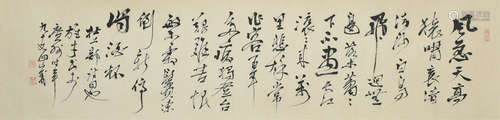 風急天高
猿嘯哀渚
清沙白鳥
飛迴無
邊落葉蕭蕭
下不盡長江
滾滾來萬
里悲秋常
作客百年
多病獨登台
艱難苦恨
繁霜鬢潦
倒新停
濁酒杯